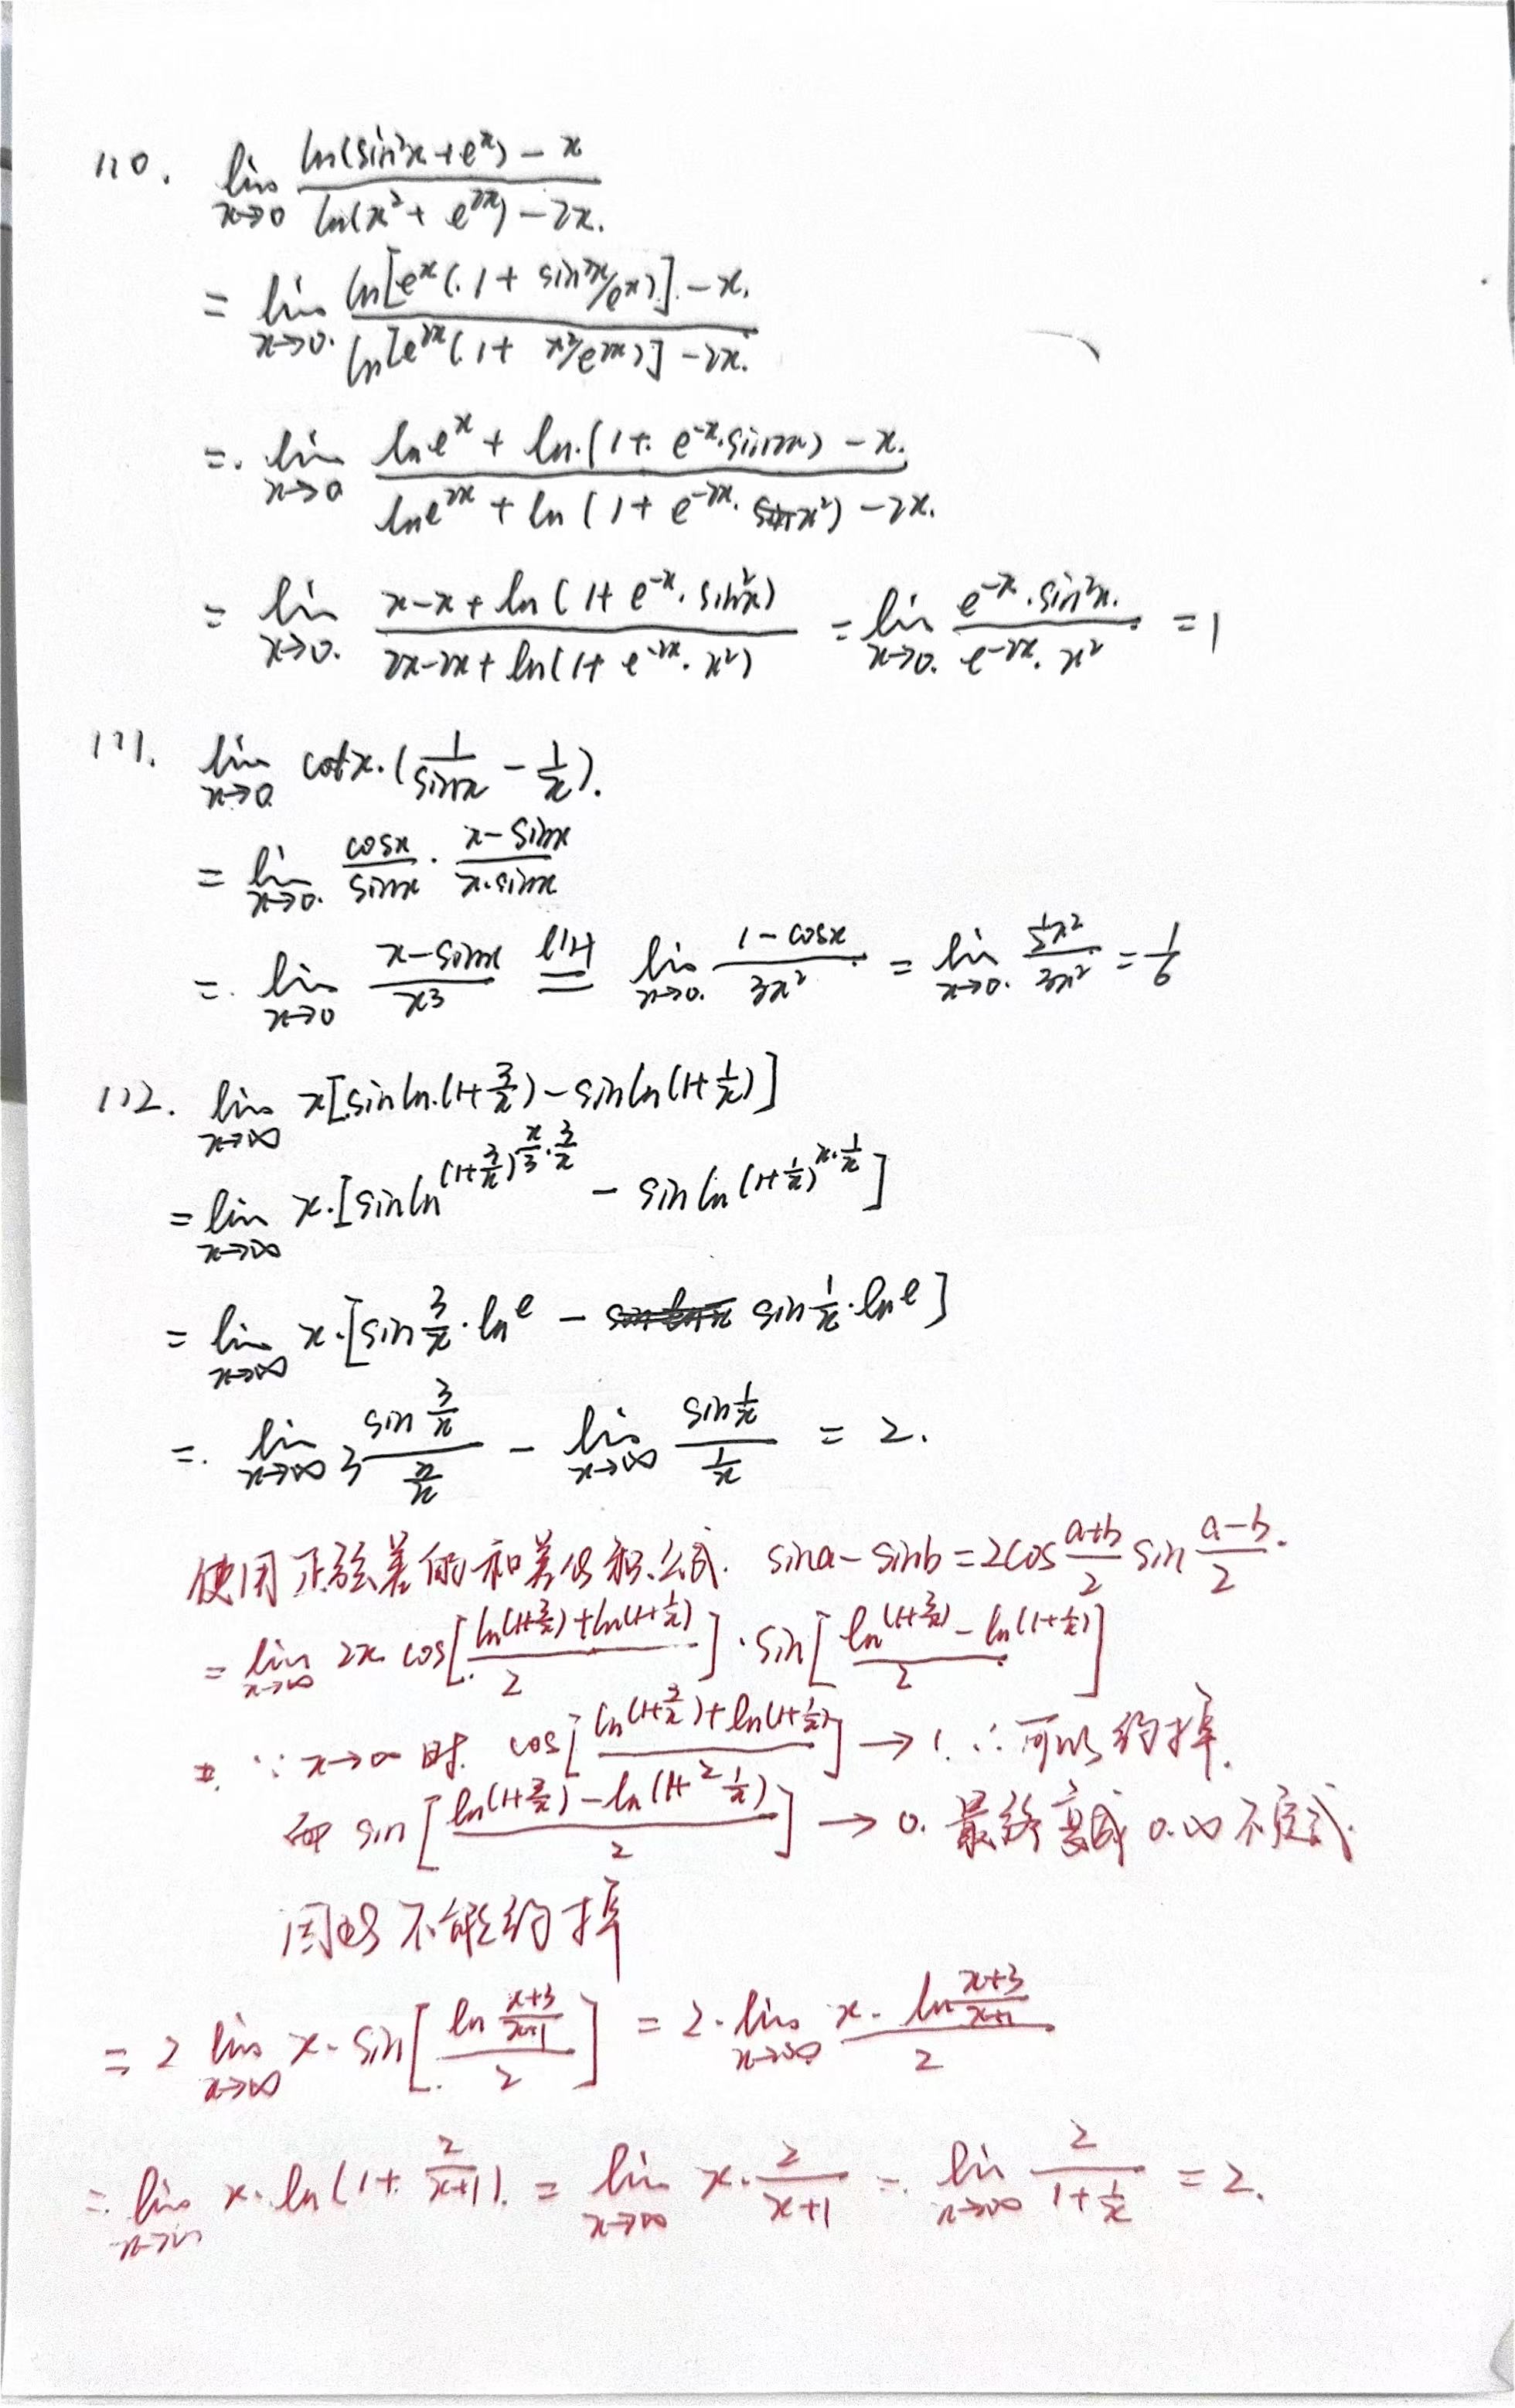 110. lim_{x→0} \frac{ln(sin²x+e^x) - x}{ln(x²+e^{2x}) - 2x.}
= lim_{x→0.} \frac{ln[e^x(1+sin²x/e^x)] - x.}{ln[e^{2x}(1+x²/e^{2x})] - 2x.}
= lim_{x→0} \frac{ln e^x + ln(1+e^{-x}·sin²x) - x.}{ln e^{2x} + ln(1+e^{-2x}·x²) - 2x.}
= lim_{x→0.} \frac{x-x+ln(1+e^{-x}·sin²x)}{2x-2x+ln(1+e^{-2x}·x²)} = lim_{x→0.} \frac{e^{-x}·sin²x.}{e^{-2x}·x²} = 1
111. lim_{x→0} cotx·(\frac{1}{sinx} - \frac{1}{x}).
= lim_{x→0.} \frac{cosx}{sinx}·\frac{x-sinx}{x·sinx}
= lim_{x→0} \frac{x-sinx}{x³} \overset{L'H}{=} lim_{x→0.} \frac{1-cosx}{3x²} = lim_{x→0.} \frac{\frac{1}{2}x²}{3x²} = \frac{1}{6}
112. lim_{x→∞} x[sinln(1+\frac{3}{x}) - sinln(1+\frac{1}{x})]
= lim_{x→∞} x·[sinln^{(1+\frac{3}{x})^{\frac{x}{3}·\frac{3}{x}}} - sinln(1+\frac{1}{x})^{x·\frac{1}{x}}]
= lim_{x→∞} x·[sin\frac{3}{x}·ln^e - sin\frac{1}{x}·ln^e]
= lim_{x→∞} 3\frac{sin\frac{3}{x}}{\frac{3}{x}} - lim_{x→∞} \frac{sin\frac{1}{x}}{\frac{1}{x}} = 2.
使用正弦差的和差化积公式. sina-sinb=2cos\frac{a+b}{2}sin\frac{a-b}{2}.
= lim_{x→∞} 2x cos[\frac{ln(1+\frac{3}{x})+ln(1+\frac{1}{x})}{2}]·sin[\frac{ln(1+\frac{3}{x})-ln(1+\frac{1}{x})}{2}]
∵ x→∞ 时. cos[\frac{ln(1+\frac{3}{x})+ln(1+\frac{1}{x})}{2}] → 1. ∴ 可以约掉.
而 sin[\frac{ln(1+\frac{3}{x})-ln(1+\frac{1}{x})}{2}] → 0. 最终变成 0·∞ 不定式.
因此不能约掉
= 2 lim_{x→∞} x·sin[\frac{ln\frac{x+3}{x+1}}{2}] = 2·lim_{x→∞} \frac{x·ln\frac{x+3}{x+1}}{2}
= lim_{x→∞} x·ln(1+\frac{2}{x+1}). = lim_{x→∞} x·\frac{2}{x+1} = lim_{x→∞} \frac{2}{1+\frac{1}{x}} = 2.